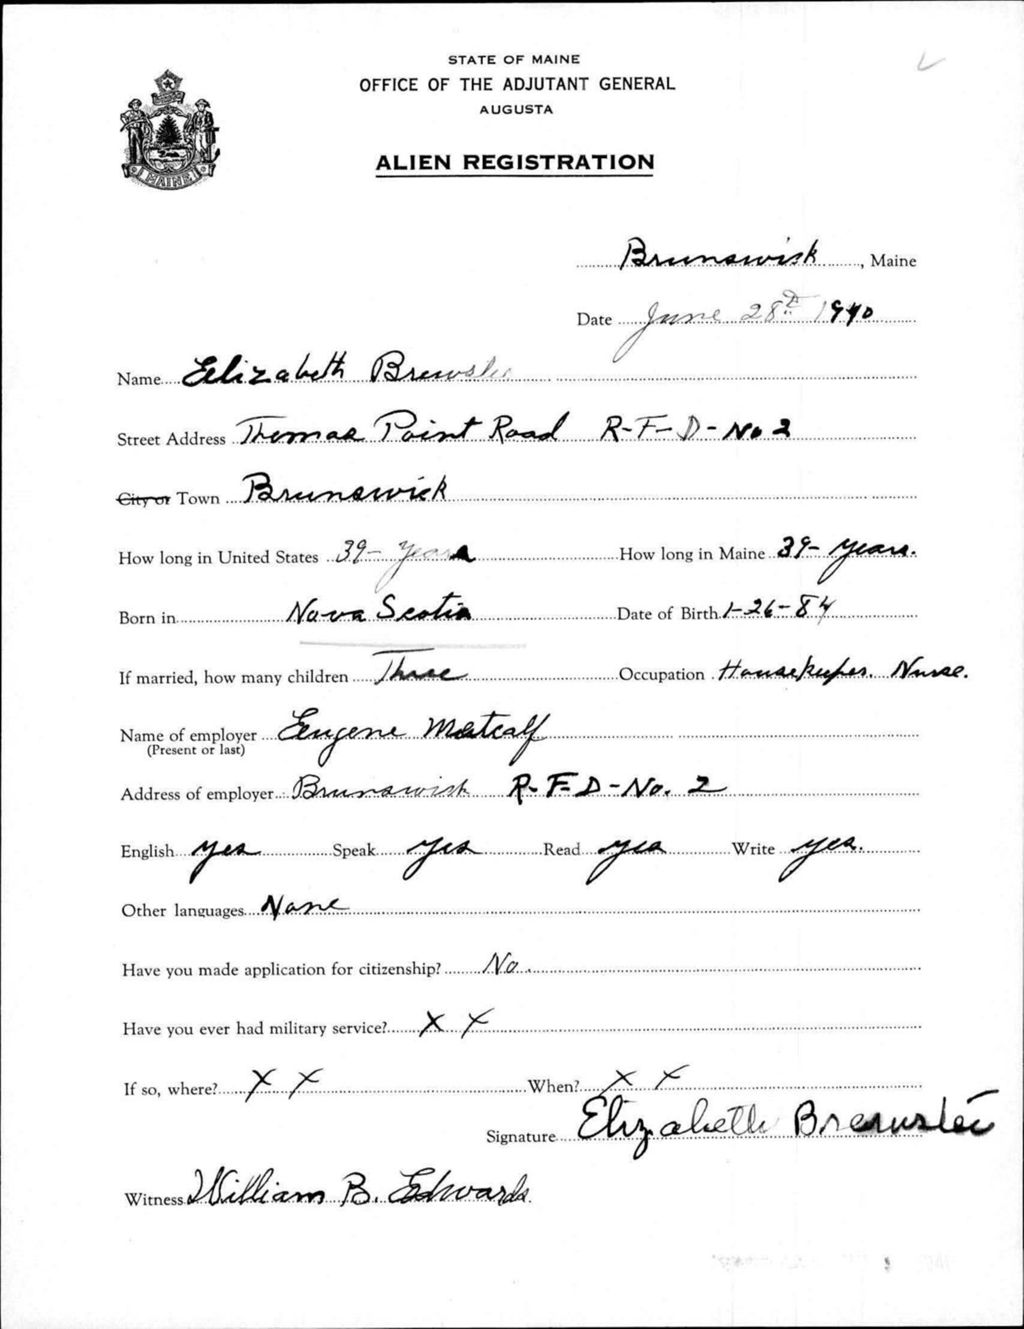 STATE OF MAINE
OFFICE OF THE ADJUTANT GENERAL
AUGUSTA
ALIEN REGISTRATION
MAINE
Brunswick, Maine
Date June 28th 1940
Name Elizabeth Brewster
Street Address Thomas Point Road R-F-D-No 2
City or Town Brunswick
How long in United States 39- Years How long in Maine 39- years.
Born in Nova Scotia Date of Birth 1-26-84
If married, how many children Three Occupation Housekeeper. Nurse.
Name of employer Eugene Metcalf
(Present or last)
Address of employer Brunswick R-F-D-No. 2
English yes Speak yes Read yes Write yes.
Other languages None
Have you made application for citizenship? No.
Have you ever had military service? X X
If so, where? X X When? X X
Signature Elizabeth Brewster
Witness William B. Edwards